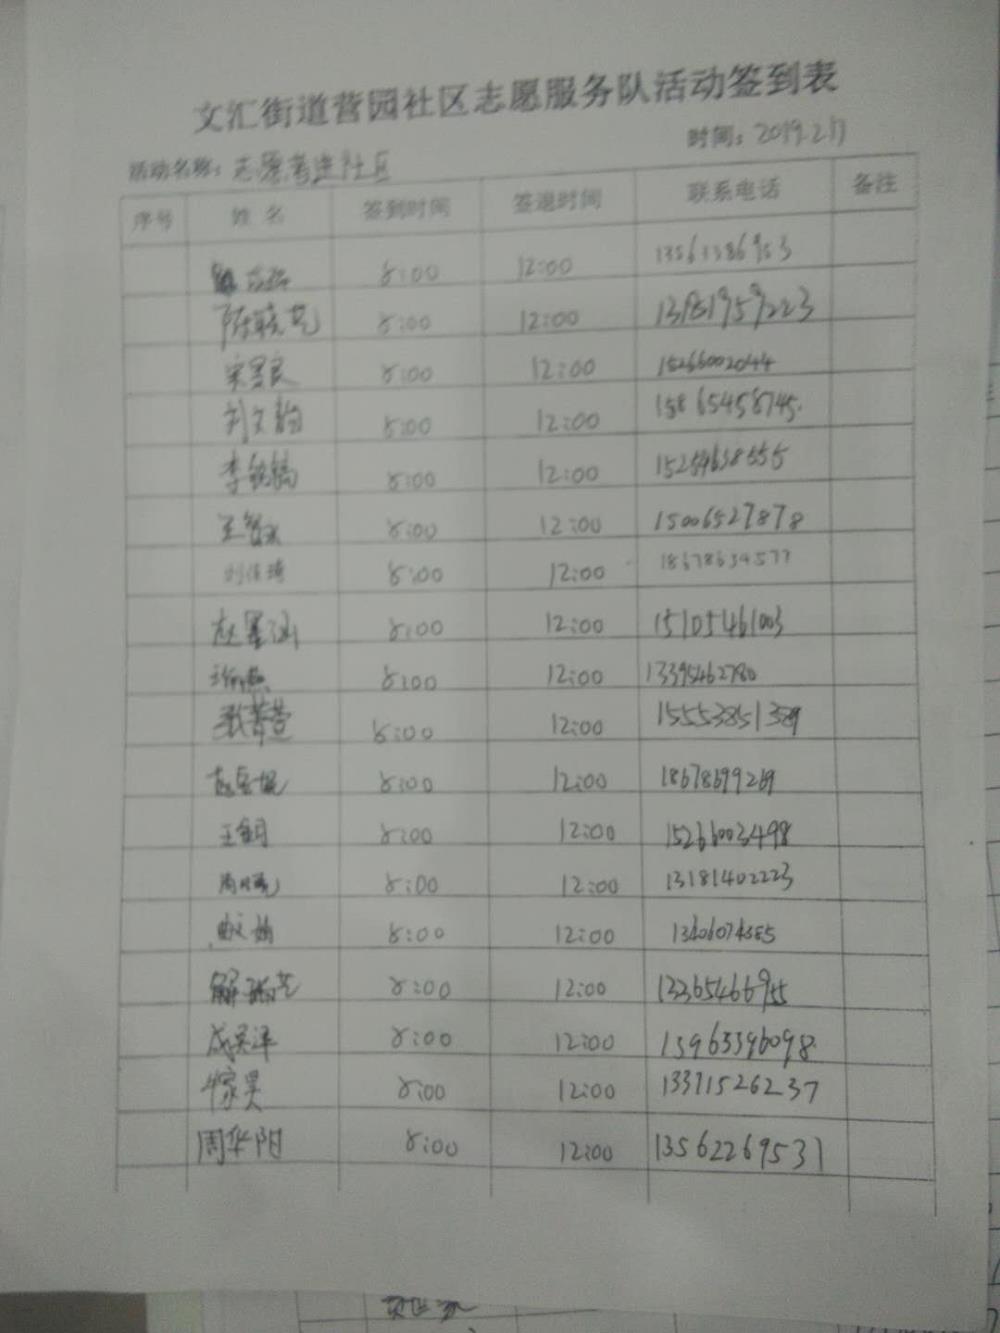 文汇街道营园社区志愿服务队活动签到表
时间：2019.2.17
活动名称：志愿者进社区
序号 姓名 签到时间 签退时间 联系电话 备注
8:00 12:00 13563386953
陈晓艺 8:00 12:00 13181959223
8:00 12:00 15266002044
刘文韵 8:00 12:00 15865458745
李 8:00 12:00 15254638555
王 8:00 12:00 15006527878
刘佳琦 8:00 12:00 18678634577
赵墨涵 8:00 12:00 15105461003
8:00 12:00 13395462780
张菁萱 8:00 12:00 15553851389
8:00 12:00 18678699269
王钥 8:00 12:00 15266003498
周晓 8:00 12:00 13181402223
8:00 12:00
解 艺 8:00 12:00 13365466955
成昊泽 8:00 12:00 15963396098
昊 8:00 12:00 13371526237
周华阳 8:00 12:00 13562269531